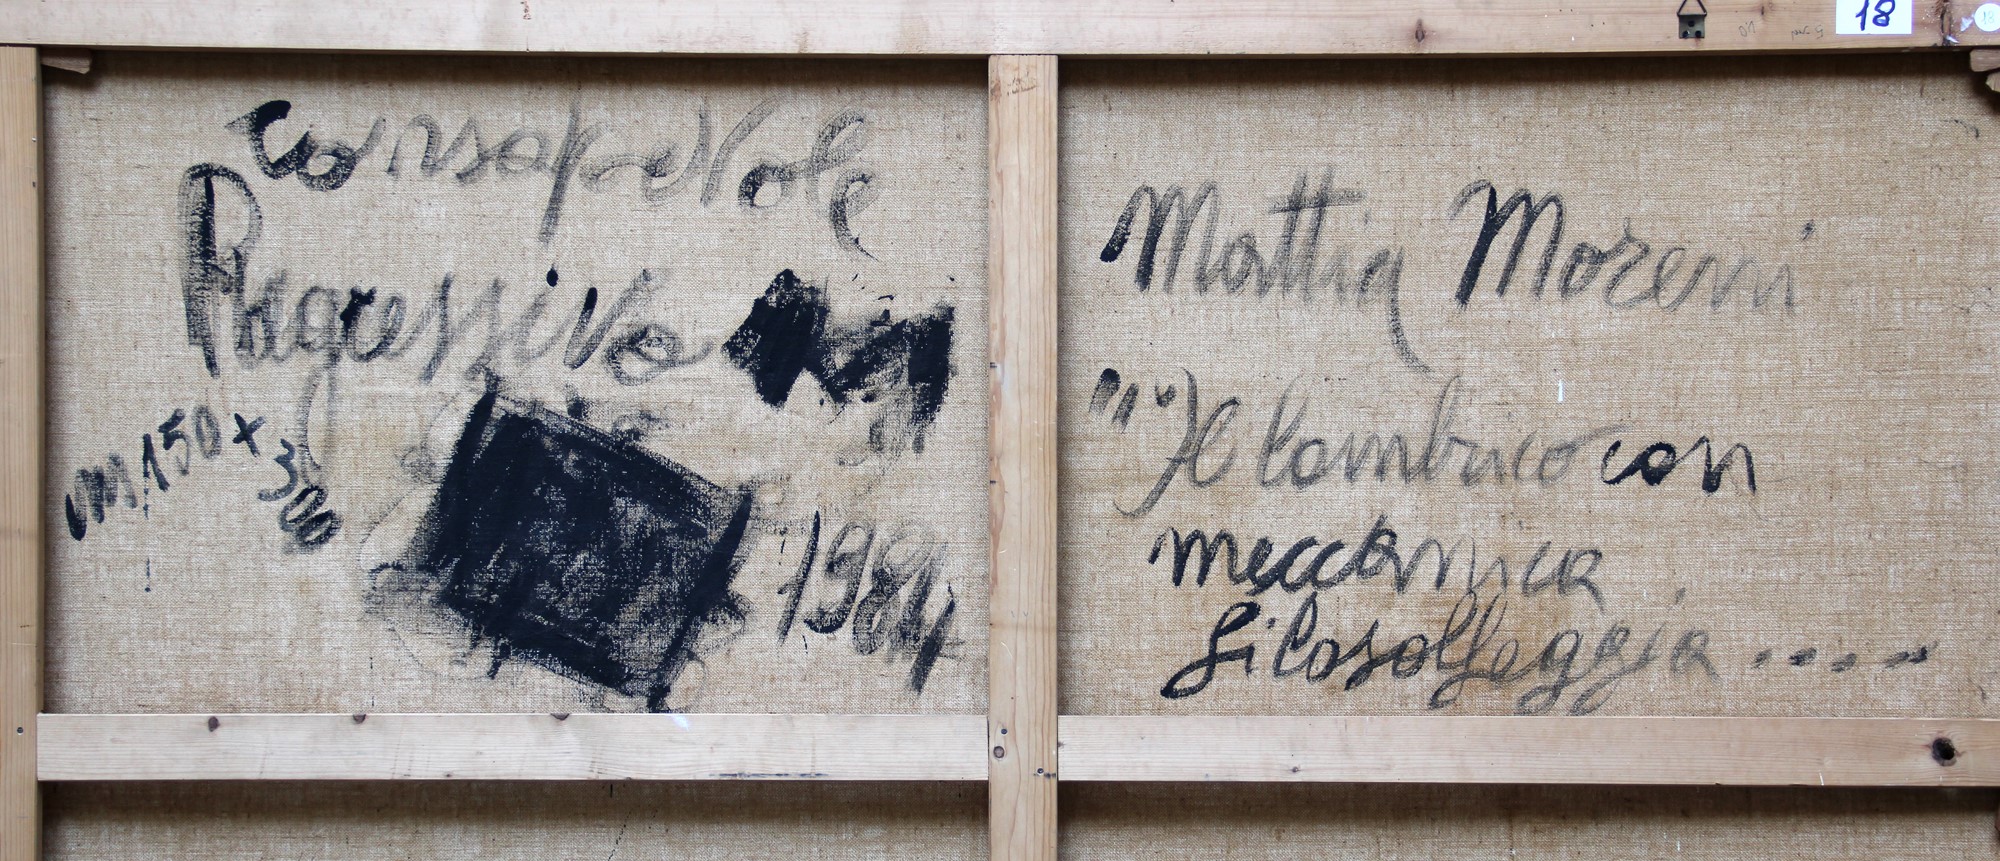 18
18
consapevole
Regressivo
cm.150 x
300
1984
Mattia Moreni
"Il lombrico con
meccanica
filosoffeggia.....